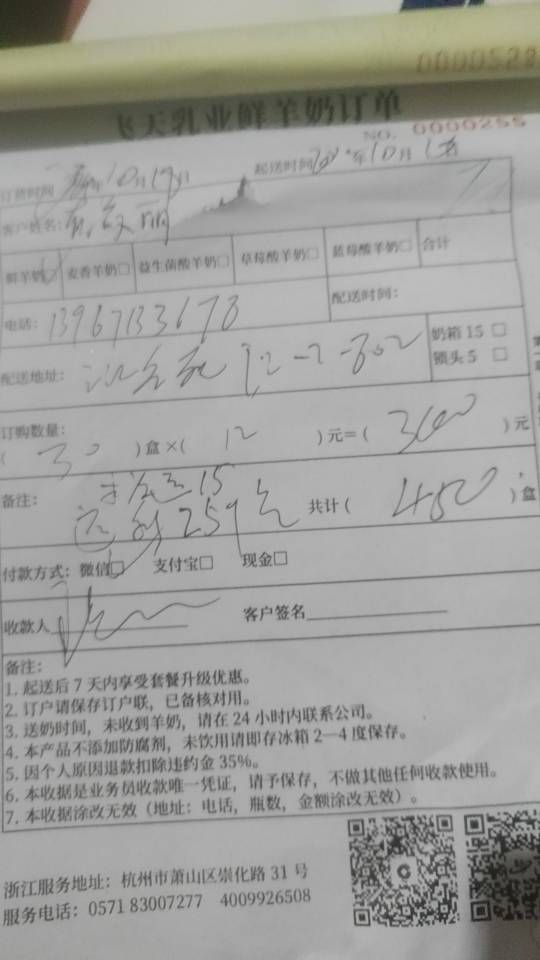 0000522
飞天乳业鲜羊奶订单
NO. 0000255
订货时间 年10月17日 起送时间 年10月
客户姓名: 丽
鲜羊奶 麦香羊奶□ 益生菌酸羊奶□ 草莓酸羊奶□ 蓝莓酸羊奶□ 合计
电话: 13967133678 配送时间:
配送地址: 12-2-802 奶箱 15 □
锁头 5 □
订购数量:
( 30 ) 盒 ×( 12 ) 元= ( 360 ) 元
备注: 15
送 259元 共计 ( 450 ) 盒
付款方式: 微信□ 支付宝□ 现金□
收款人 客户签名
备注:
1. 起送后 7 天内享受套餐升级优惠。
2. 订户请保存订户联, 已备核对用。
3. 送奶时间, 未收到羊奶, 请在 24 小时内联系公司。
4. 本产品不添加防腐剂, 未饮用请即存冰箱 2—4 度保存。
5. 因个人原因退款扣除违约金 35%。
6. 本收据是业务员收款唯一凭证, 请予保存, 不做其他任何收款使用。
7. 本收据涂改无效 (地址: 电话, 瓶数, 金额涂改无效) 。
浙江服务地址: 杭州市萧山区崇化路 31 号
服务电话: 0571 83007277 4009926508